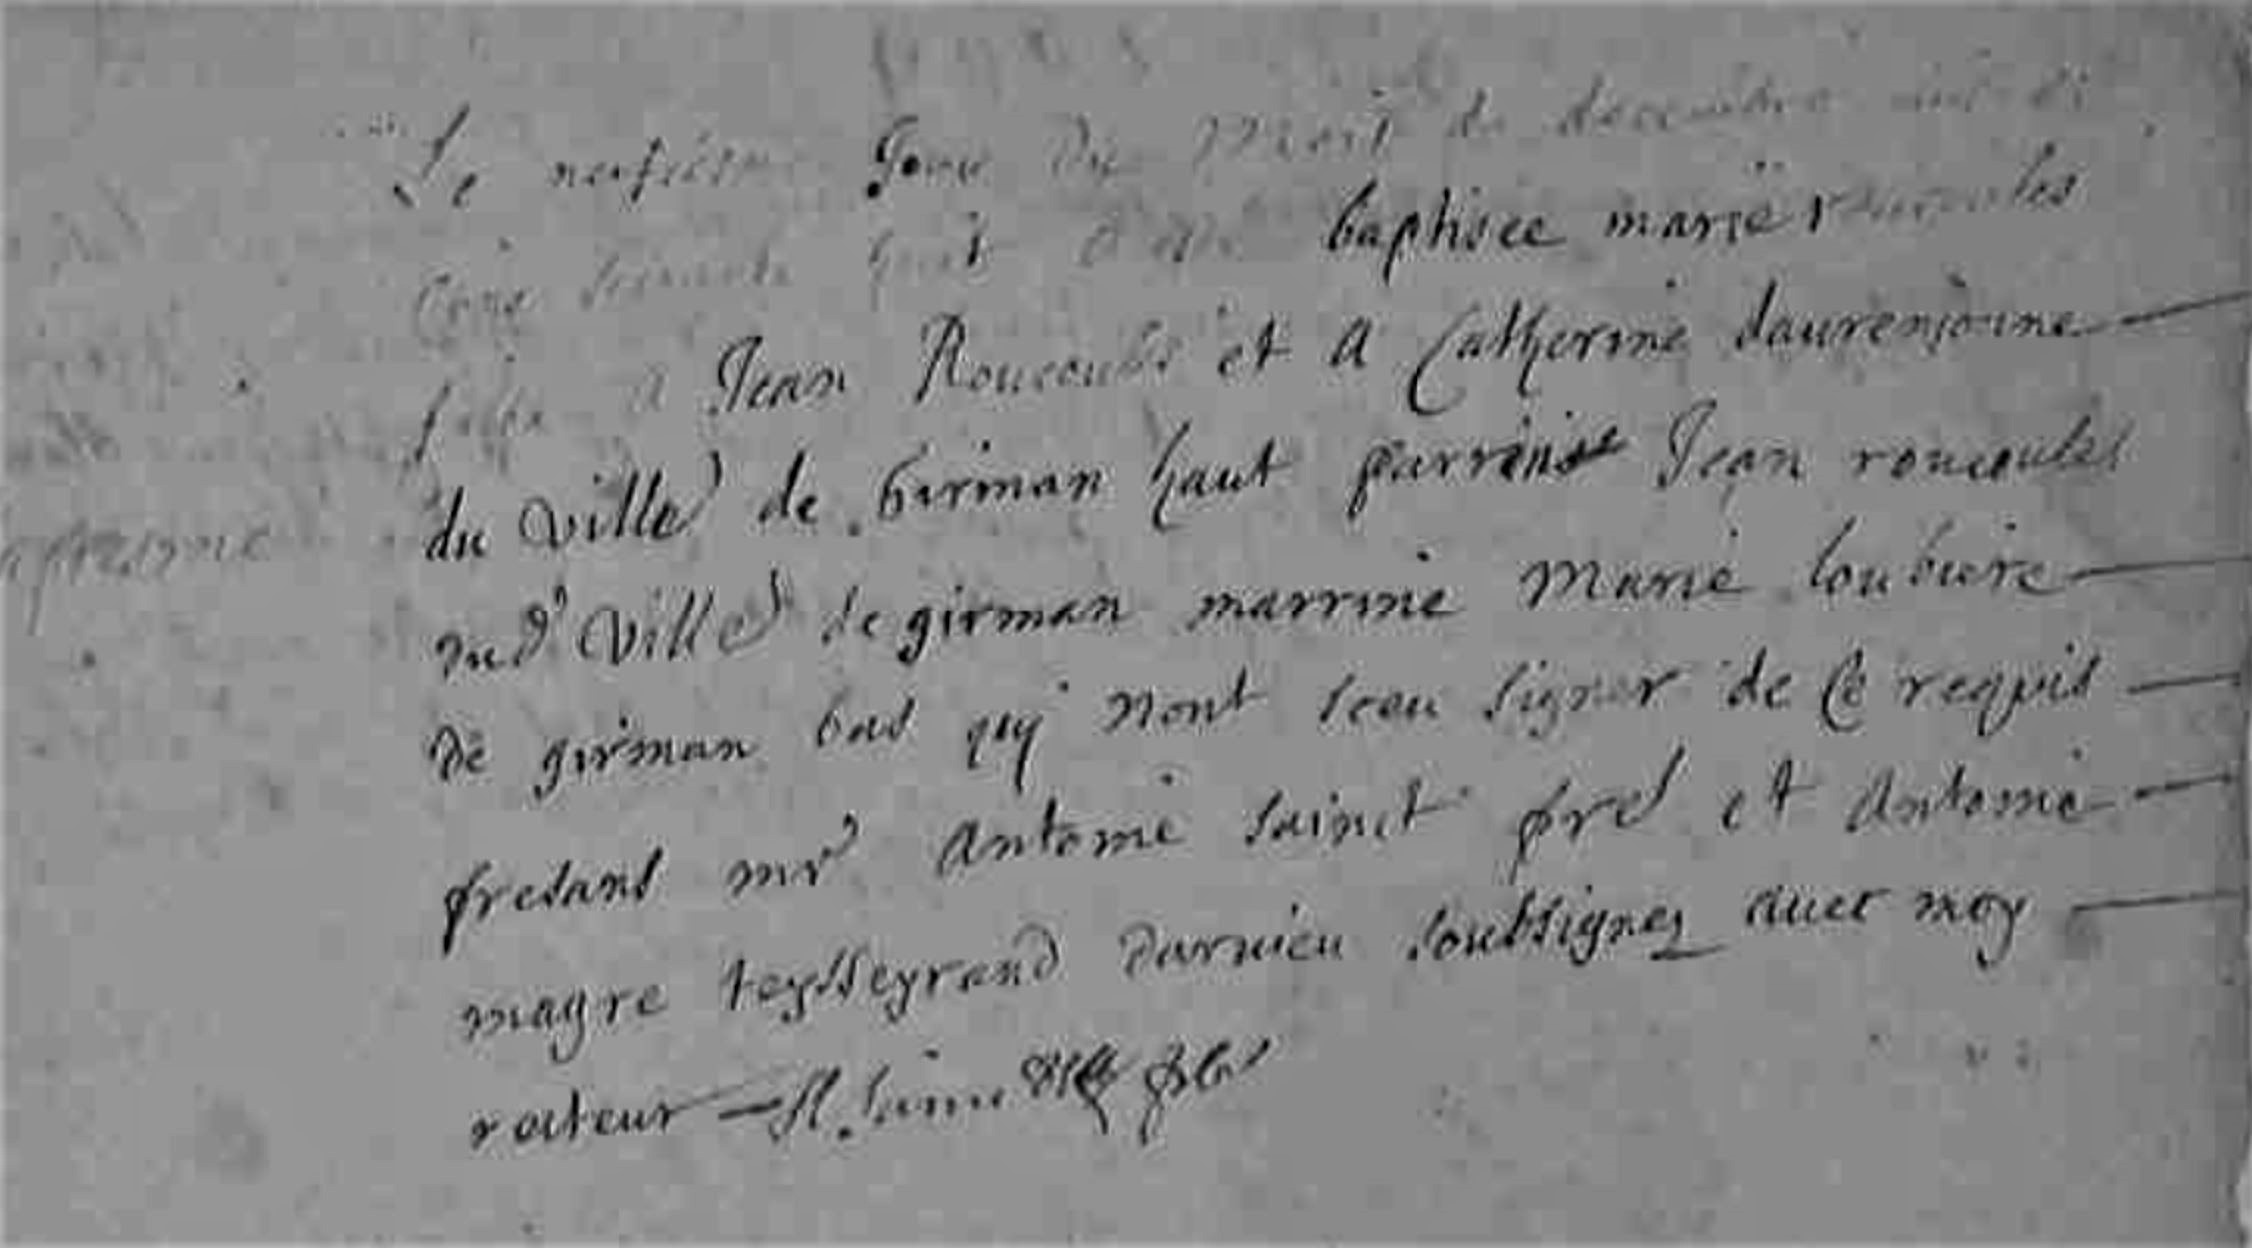 Le neufiesme Jour du mois de decembre mil si
cens soixante huit a este baptisee marie roucoules
faite a Jean Roucoules et a Catherine daurenjoune
du ville de girman haut parrins Jean roucoules
du d ville de girman marrine Marie loubiere
de girman bas quy nont sceu signer de Ce requis
presans mr Antoine sainct pre et Antoine
magre teysseyrand darnieu soubsignes avec moy
recteur